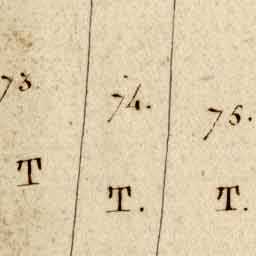 73. 74. 75.
T T. T.